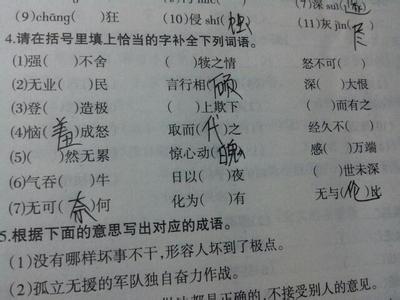 (9)chāng( )狂 (10)侵shí(蚀) (11)灰jìn(烬)
4.请在括号里填上恰当的字补全下列词语。
(1)强( )不舍 ( )犊之情 怒不可( )
(2)无业( )民 言行相(顾) 深( )大恨
(3)登( )造极 ( )上欺下 ( )而有之
(4)恼(羞)成怒 取而(代)之 经久不( )
(5)( )然无累 惊心动(魄) 感( )万端
(6)气吞( )牛 日以( )夜 ( )世未深
(7)无可(奈)何 化为( )有 无与(伦)比
5.根据下面的意思写出对应的成语。
(1)没有哪样坏事不干,形容人坏到了极点。
(2)孤立无援的军队独自奋力作战。
都是正确的,不接受别人的意见。